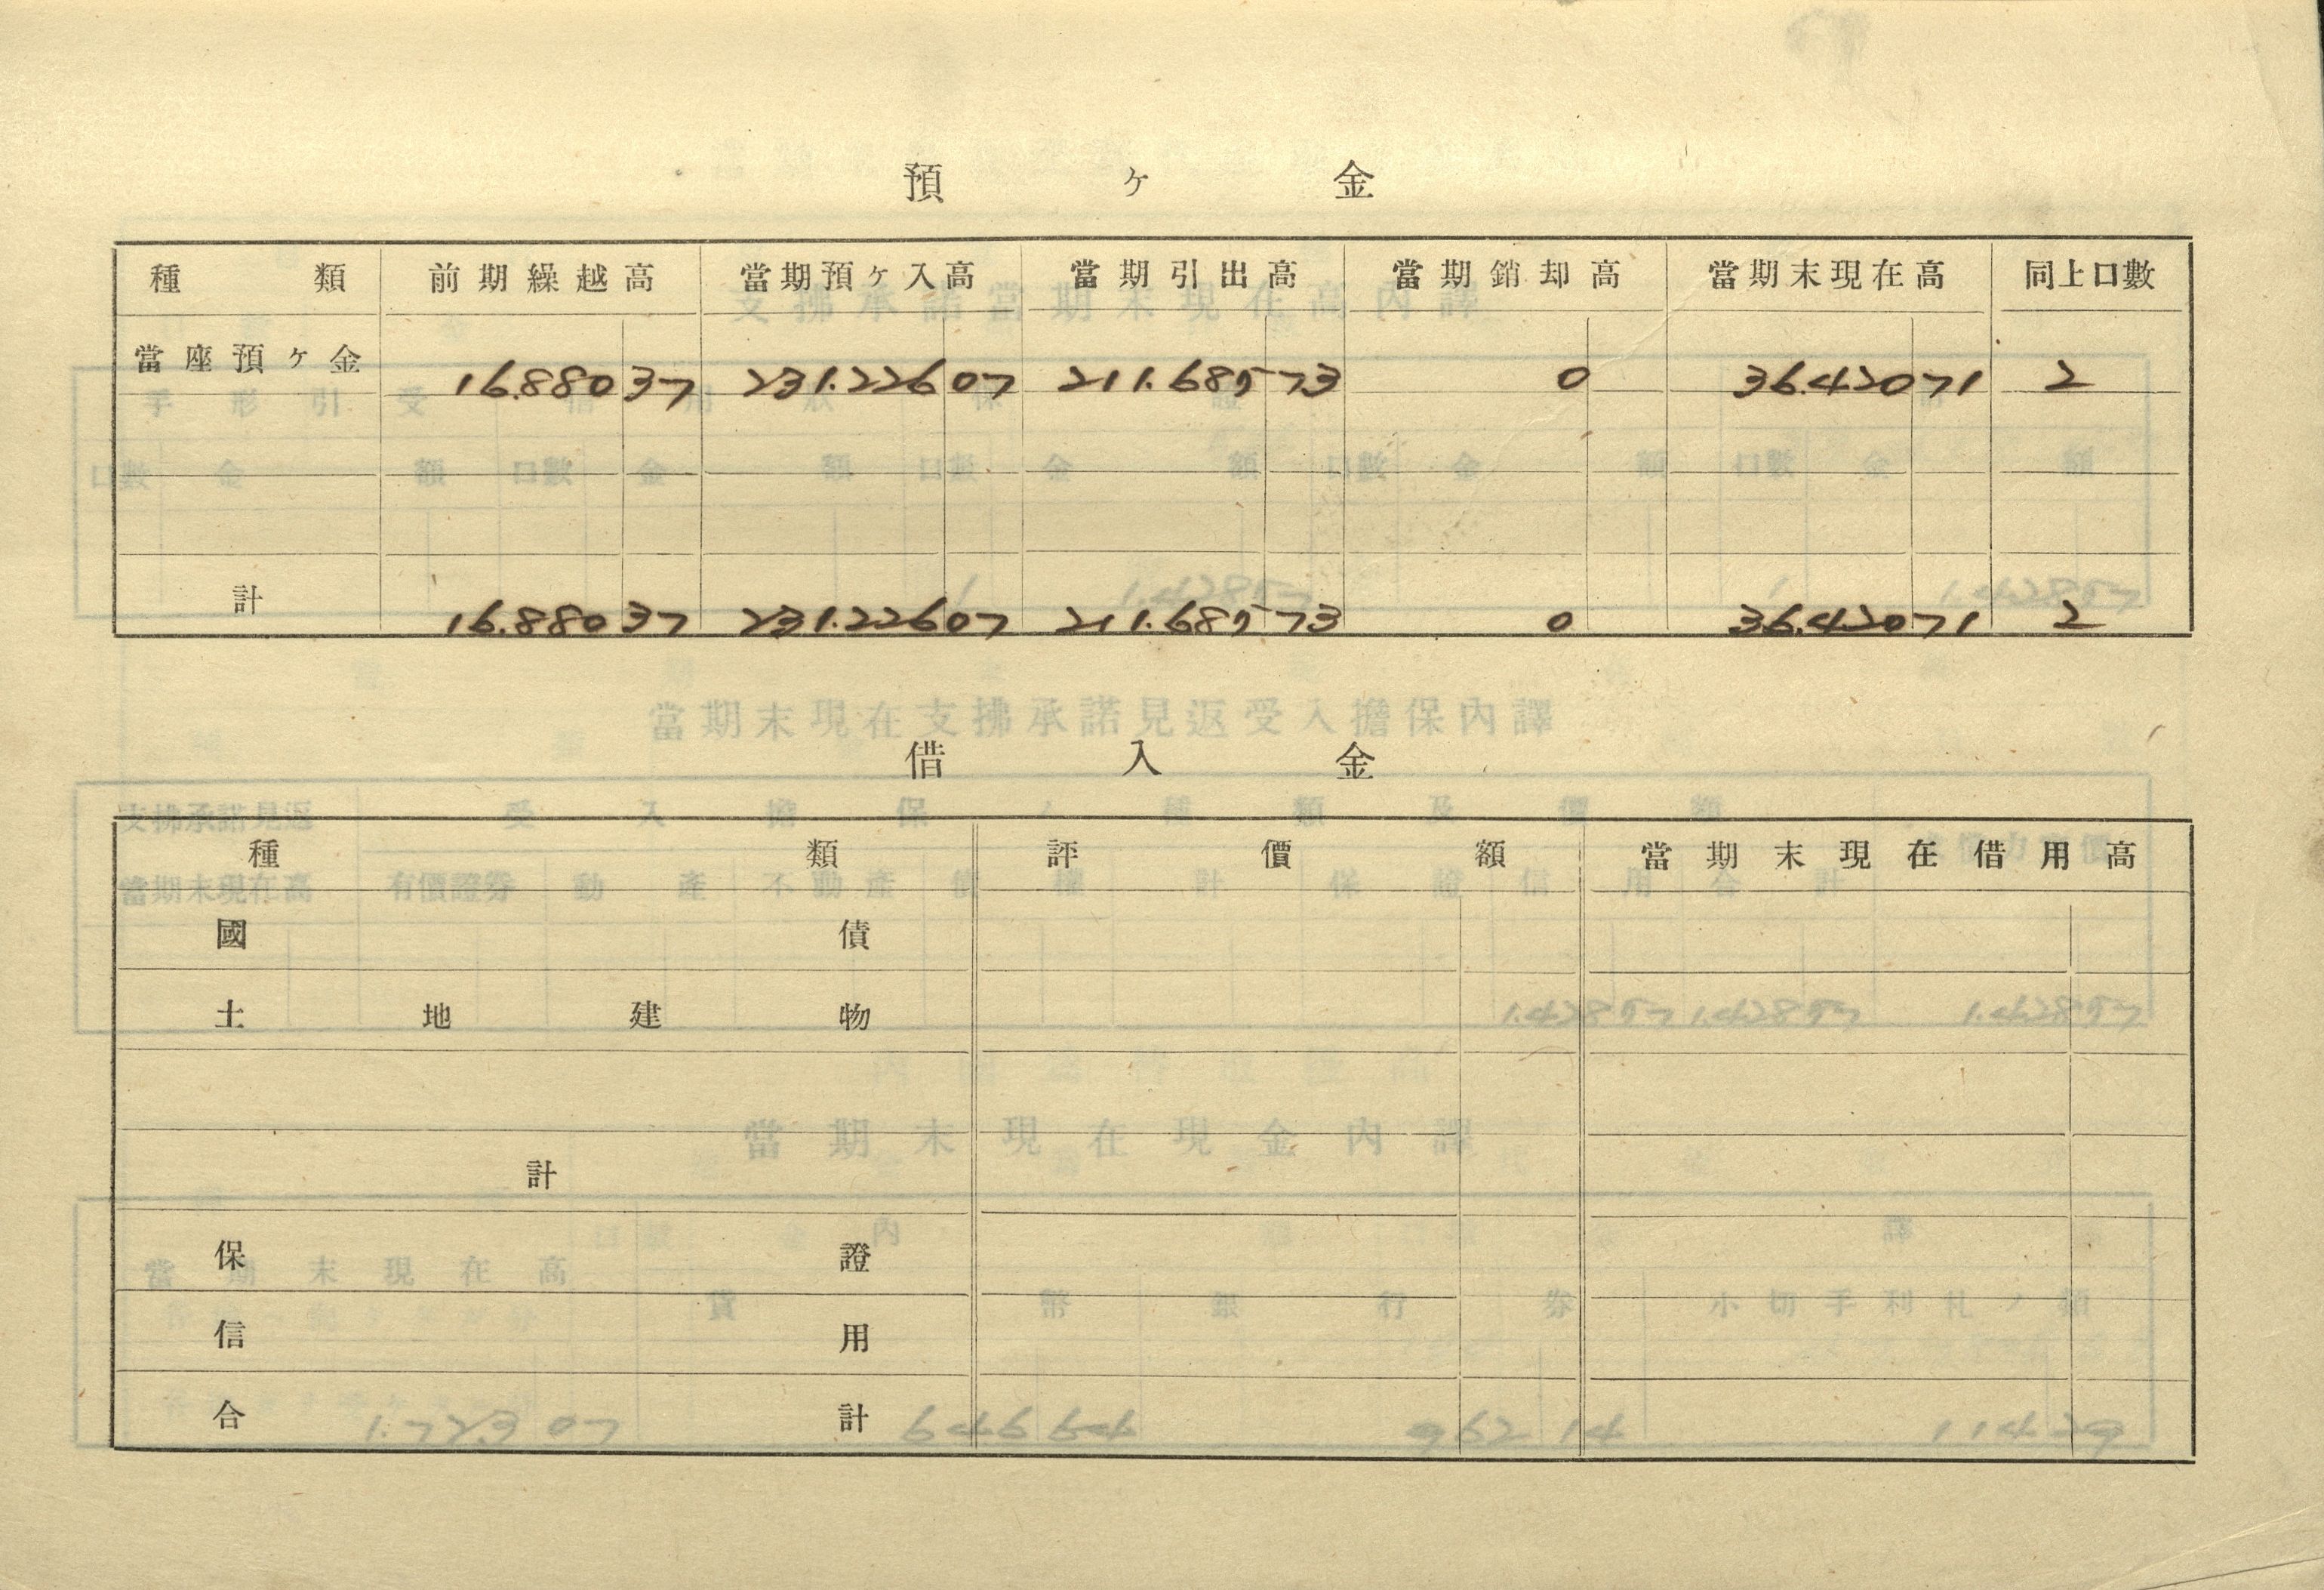 預ヶ金
種類 前期繰越高 當期預ヶ入高 當期引出高 當期銷却高 當期末現在高 同上口數
當座預ヶ金 16.880 37 231.226 07 211.685 73 0 36.420 71 2
計 16.880 37 231.226 07 211.685 73 0 36.420 71 2
借入金
種類 評價額 當期末現在借用高
國債
土地建物
計
保證
信用
合計